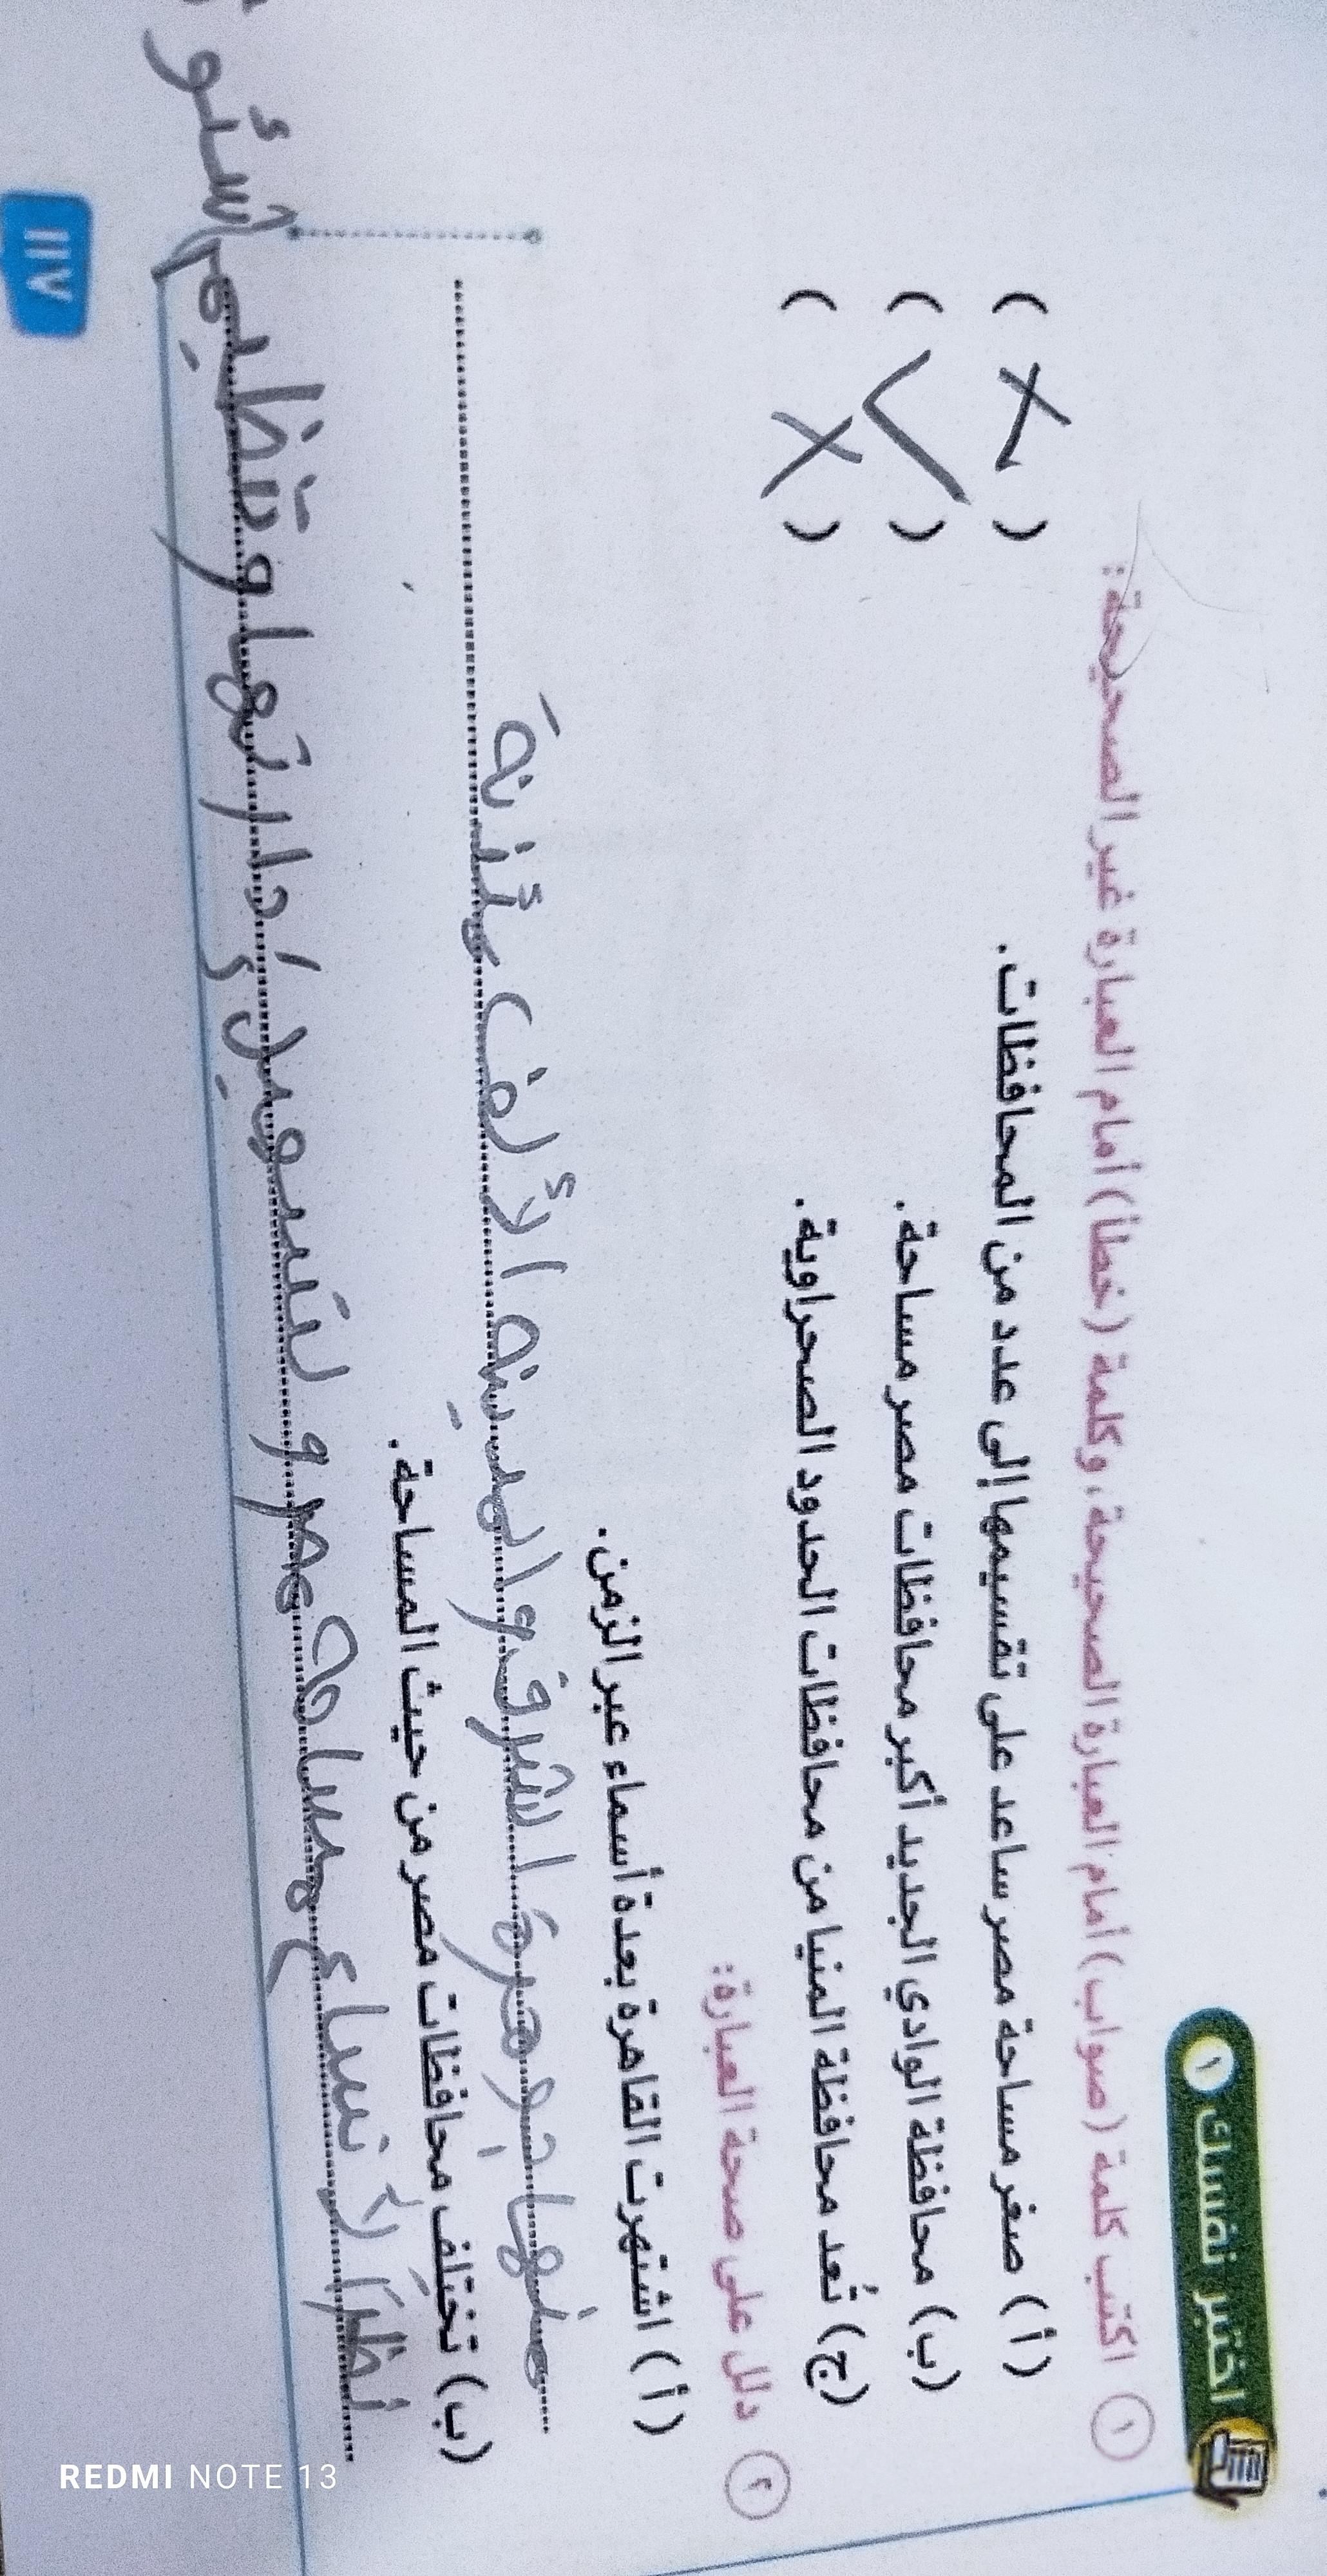 اختبر نفسك ١
١ اكتب كلمة (صواب) أمام العبارة الصحيحة، وكلمة (خطأ) أمام العبارة غير الصحيحة:
(أ) صغر مساحة مصر ساعد على تقسيمها إلى عدد من المحافظات. ( X )
(ب) محافظة الوادي الجديد أكبر محافظات مصر مساحة. ( ✓ )
(ج) تُعد محافظة المنيا من محافظات الحدود الصحراوية. ( X )
٢ دلل على صحة العبارة:
(أ) اشتهرت القاهرة بعدة أسماء عبر الزمن.
منها جوهرة الشرق و المدينة الألف مئذنة
(ب) تختلف محافظات مصر من حيث المساحة.
نظرا لأتساع مساحة مصر و لتسهيل إدارتها و تنظيم شئو
١١٧
REDMI NOTE 13